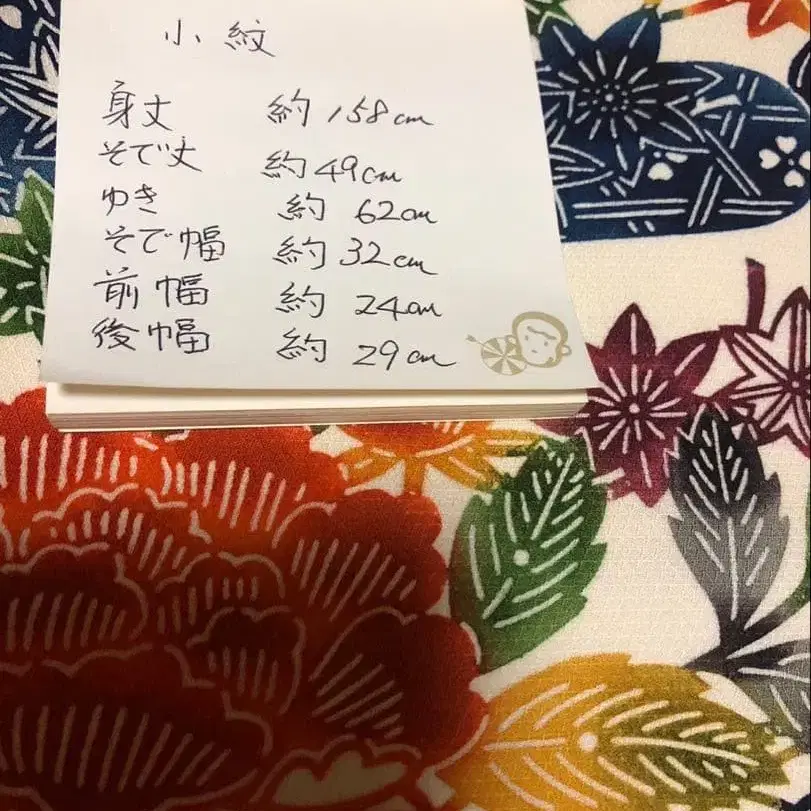 小紋
身丈 約158cm
そで丈 約49cm
ゆき 約62cm
そで幅 約32cm
前幅 約24cm
後幅 約29cm